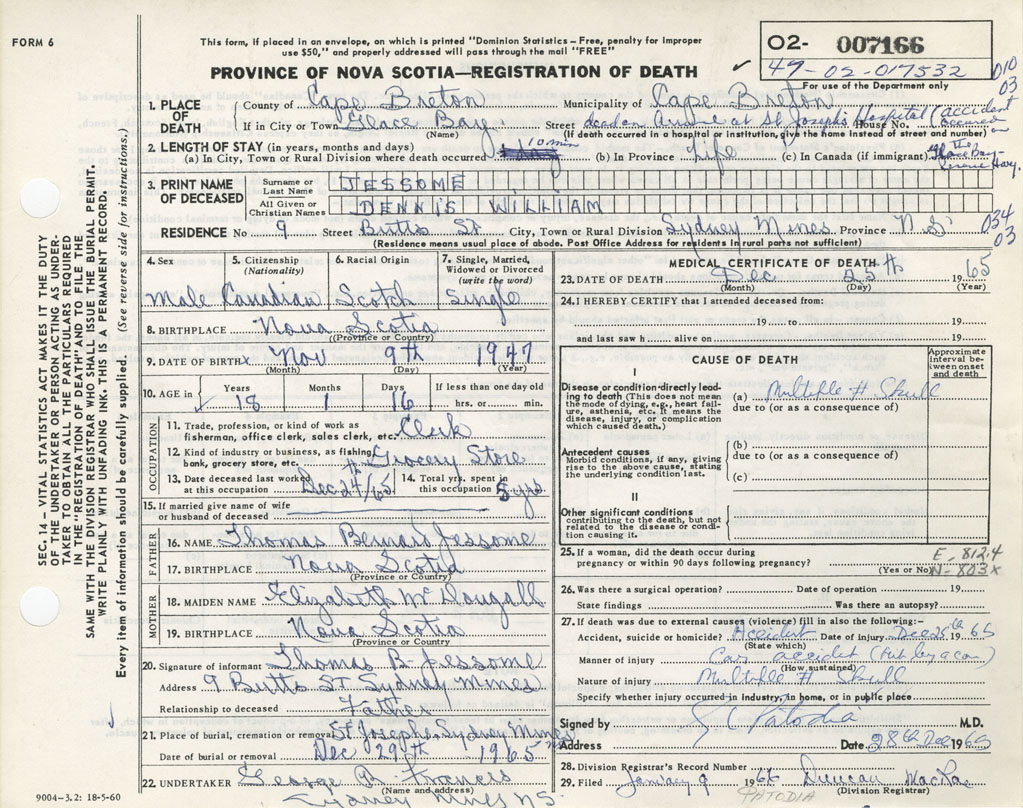 FORM 6
This form, if placed in an envelope, on which is printed "Dominion Statistics – Free, penalty for improper
use $50," and properly addressed will pass through the mail "FREE"
PROVINCE OF NOVA SCOTIA—REGISTRATION OF DEATH ✓
02- 007166
49-02-017532
For use of the Department only
010
03
1. PLACE OF DEATH
County of Cape Breton Municipality of Cape Breton
If in City or Town Glace Bay Street dead on arrival at St Joseph's Hospital (accident occured on House No.
(Name) (If death occurred in a hospital or institution, give the name instead of street and number)
2. LENGTH OF STAY (in years, months and days)
(a) In City, Town or Rural Division where death occurred 10 min (b) In Province Life (c) In Canada (if immigrant) the Glace Bay Hwy.
3. PRINT NAME OF DECEASED
Surname or Last Name JESSOME
All Given or Christian Names DENNIS WILLIAM
RESIDENCE No 9 Street Butts St City, Town or Rural Division Sydney Mines Province N S
(Residence means usual place of abode. Post Office Address for residents in rural parts not sufficient)
034
03
4. Sex Male
5. Citizenship (Nationality) Canadian
6. Racial Origin Scotch
7. Single, Married, Widowed or Divorced (write the word) Single
8. BIRTHPLACE Nova Scotia
(Province or Country)
9. DATE OF BIRTH Nov 9th 1947
(Month) (Day) (Year)
10. AGE in Years 18 Months 1 Days 16 If less than one day old hrs. or min.
OCCUPATION
11. Trade, profession, or kind of work as fisherman, office clerk, sales clerk, etc. Clerk
12. Kind of industry or business, as fishing, bank, grocery store, etc. Grocery Store
13. Date deceased last worked at this occupation Dec 24/65
14. Total yrs. spent in this occupation 5 yrs
15. If married give name of wife or husband of deceased
FATHER
16. NAME Thomas Bernard Jessome
17. BIRTHPLACE Nova Scotia
(Province or Country)
MOTHER
18. MAIDEN NAME Elizabeth McDougall
19. BIRTHPLACE Nova Scotia
(Province or Country
20. Signature of informant Thomas B. Jessome
Address 9 Butts St Sydney Mines
Relationship to deceased Father
21. Place of burial, cremation or removal St Josephs, Sydney Mines
Date of burial or removal Dec 29th 1965
22. UNDERTAKER George B. Francis
(Name and address)
Sydney Mines NS.
9004-3.2: 18-5-60
MEDICAL CERTIFICATE OF DEATH
23. DATE OF DEATH Dec 25th 1965
(Month) (Day) (Year)
24. I HEREBY CERTIFY that I attended deceased from:
19 to 19
and last saw h alive on 19
CAUSE OF DEATH
Approximate interval between onset and death
I
Disease or condition directly leading to death (This does not mean the mode of dying, e.g., heart failure, asthenia, etc. It means the disease, injury, or complication which caused death.)
(a) Multiple # Skull
due to (or as a consequence of)
Antecedent causes
Morbid conditions, if any, giving rise to the above cause, stating the underlying condition last.
(b)
due to (or as a consequence of)
(c)
II
Other significant conditions
contributing to the death, but not related to the disease or condition causing it.
25. If a woman, did the death occur during
pregnancy or within 90 days following pregnancy?
(Yes or No)
E-812.4
N-803x
26. Was there a surgical operation? Date of operation 19
State findings Was there an autopsy?
27. If death was due to external causes (violence) fill in also the following:-
Accident, suicide or homicide? Accident Date of injury Dec 25th 1965
(State which)
Manner of injury Car accident (hit by a car)
(How sustained)
Nature of injury Multiple # Skull
Specify whether injury occurred in industry, in home, or in public place
Signed by Patodia M.D.
Address Date 28th Dec 1965
28. Division Registrar's Record Number
29. Filed January 9 1966 Duncan MacRae
(Division Registrar)
PATODIA
SEC. 14 – VITAL STATISTICS ACT MAKES IT THE DUTY
OF THE UNDERTAKER OR PERSON ACTING AS UNDER-
TAKER TO OBTAIN ALL THE PARTICULARS REQUIRED
IN THE "REGISTRATION OF DEATH" AND TO FILE THE
SAME WITH THE DIVISION REGISTRAR WHO SHALL ISSUE THE BURIAL PERMIT.
WRITE PLAINLY WITH UNFADING INK. THIS IS A PERMANENT RECORD.
Every item of information should be carefully supplied. (See reverse side for instructions.)